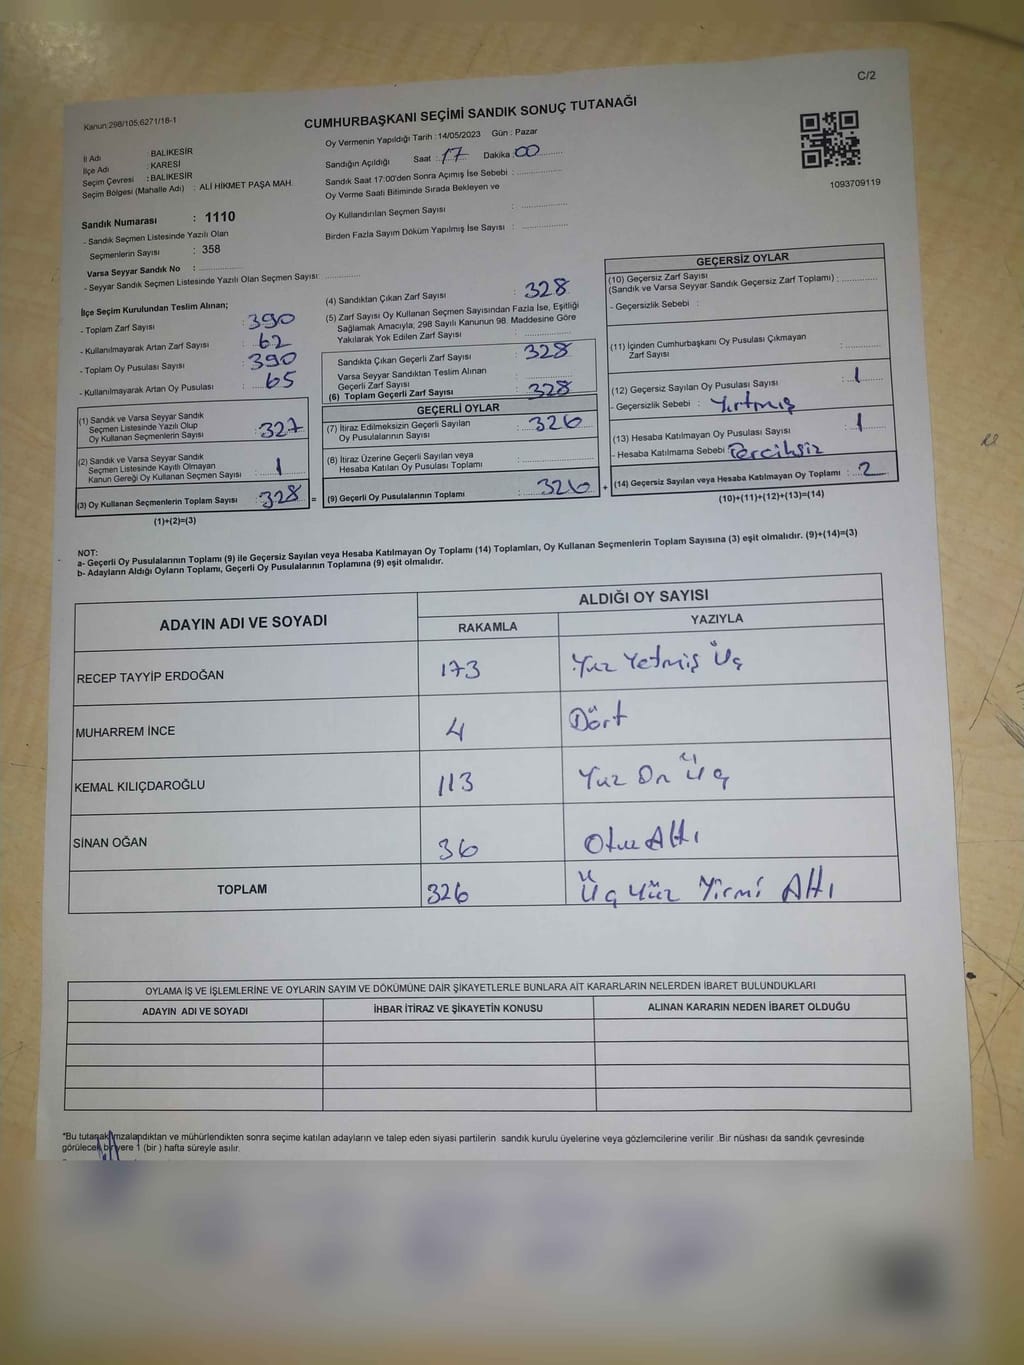 C/2
Kanun:298/105;6271/16-1
CUMHURBAŞKANI SEÇİMİ SANDIK SONUÇ TUTANAĞI
Oy Vermenin Yapıldığı Tarih : 14/05/2023 Gün : Pazar
İl Adı : BALIKESİR
İlçe Adı : KARESİ
Seçim Çevresi : BALIKESİR
Seçim Bölgesi (Mahalle Adı) : ALİ HİKMET PAŞA MAH.
Sandığın Açıldığı Saat : 17 Dakika : 00
Sandık Saat 17:00'den Sonra Açımış İse Sebebi :
Oy Verme Saati Bitiminde Sırada Bekleyen ve
Oy Kullandırılan Seçmen Sayısı :
Birden Fazla Sayım Döküm Yapılmış İse Sayısı :
1093709119
Sandık Numarası : 1110
- Sandık Seçmen Listesinde Yazılı Olan
Seçmenlerin Sayısı : 358
Varsa Seyyar Sandık No :
- Seyyar Sandık Seçmen Listesinde Yazılı Olan Seçmen Sayısı:
İlçe Seçim Kurulundan Teslim Alınan;
- Toplam Zarf Sayısı : 390
- Kullanılmayarak Artan Zarf Sayısı : 62
- Toplam Oy Pusulası Sayısı : 390
- Kullanılmayarak Artan Oy Pusulası : 65
(1) Sandık ve Varsa Seyyar Sandık
Seçmen Listesinde Yazılı Olup
Oy Kullanan Seçmenlerin Sayısı : 327
(2) Sandık ve Varsa Seyyar Sandık
Seçmen Listesinde Kayıtlı Olmayan
Kanun Gereği Oy Kullanan Seçmen Sayısı : 1
(3) Oy Kullanan Seçmenlerin Toplam Sayısı : 328 =
(1)+(2)=(3)
(4) Sandıktan Çıkan Zarf Sayısı : 328
(5) Zarf Sayısı Oy Kullanan Seçmen Sayısından Fazla İse, Eşitliği
Sağlamak Amacıyla; 298 Sayılı Kanunun 98. Maddesine Göre
Yakılarak Yok Edilen Zarf Sayısı :
Sandıkta Çıkan Geçerli Zarf Sayısı : 328
Varsa Seyyar Sandıktan Teslim Alınan
Geçerli Zarf Sayısı :
(6) Toplam Geçerli Zarf Sayısı : 328
GEÇERLİ OYLAR
(7) İtiraz Edilmeksizin Geçerli Sayılan
Oy Pusulalarının Sayısı : 326
(8) İtiraz Üzerine Geçerli Sayılan veya
Hesaba Katılan Oy Pusulası Toplamı :
(9) Geçerli Oy Pusulalarının Toplamı : 326 +
GEÇERSİZ OYLAR
(10) Geçersiz Zarf Sayısı
(Sandık ve Varsa Seyyar Sandık Geçersiz Zarf Toplamı) :
- Geçersizlik Sebebi :
(11) İçinden Cumhurbaşkanı Oy Pusulası Çıkmayan
Zarf Sayısı :
(12) Geçersiz Sayılan Oy Pusulası Sayısı : 1
- Geçersizlik Sebebi : Yırtmış
(13) Hesaba Katılmayan Oy Pusulası Sayısı : 1
- Hesaba Katılmama Sebebi : Tercihsiz
(14) Geçersiz Sayılan veya Hesaba Katılmayan Oy Toplamı : 2
(10)+(11)+(12)+(13)=(14)
NOT:
a- Geçerli Oy Pusulalarının Toplamı (9) ile Geçersiz Sayılan veya Hesaba Katılmayan Oy Toplamı (14) Toplamları, Oy Kullanan Seçmenlerin Toplam Sayısına (3) eşit olmalıdır. (9)+(14)=(3)
b- Adayların Aldığı Oyların Toplamı, Geçerli Oy Pusulalarının Toplamına (9) eşit olmalıdır.
ADAYIN ADI VE SOYADI
ALDIĞI OY SAYISI
RAKAMLA YAZIYLA
RECEP TAYYİP ERDOĞAN 173 Yüz Yetmiş Üç
MUHARREM İNCE 4 Dört
KEMAL KILIÇDAROĞLU 113 Yuz On Üç
SİNAN OĞAN 36 Otuz Altı
TOPLAM 326 Üç Yüz Yirmi Altı
OYLAMA İŞ VE İŞLEMLERİNE VE OYLARIN SAYIM VE DÖKÜMÜNE DAİR ŞİKAYETLERLE BUNLARA AİT KARARLARIN NELERDEN İBARET BULUNDUKLARI
ADAYIN ADI VE SOYADI İHBAR İTİRAZ VE ŞİKAYETİN KONUSU ALINAN KARARIN NEDEN İBARET OLDUĞU
*Bu tutanak imzalandıktan ve mühürlendikten sonra seçime katılan adayların ve talep eden siyasi partilerin sandık kurulu üyelerine veya gözlemcilerine verilir .Bir nüshası da sandık çevresinde
görülecek bir yere 1 (bir ) hafta süreyle asılır.